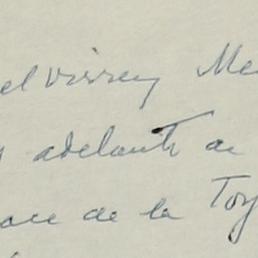 el virrey Me
adelante de
ace de la Toy